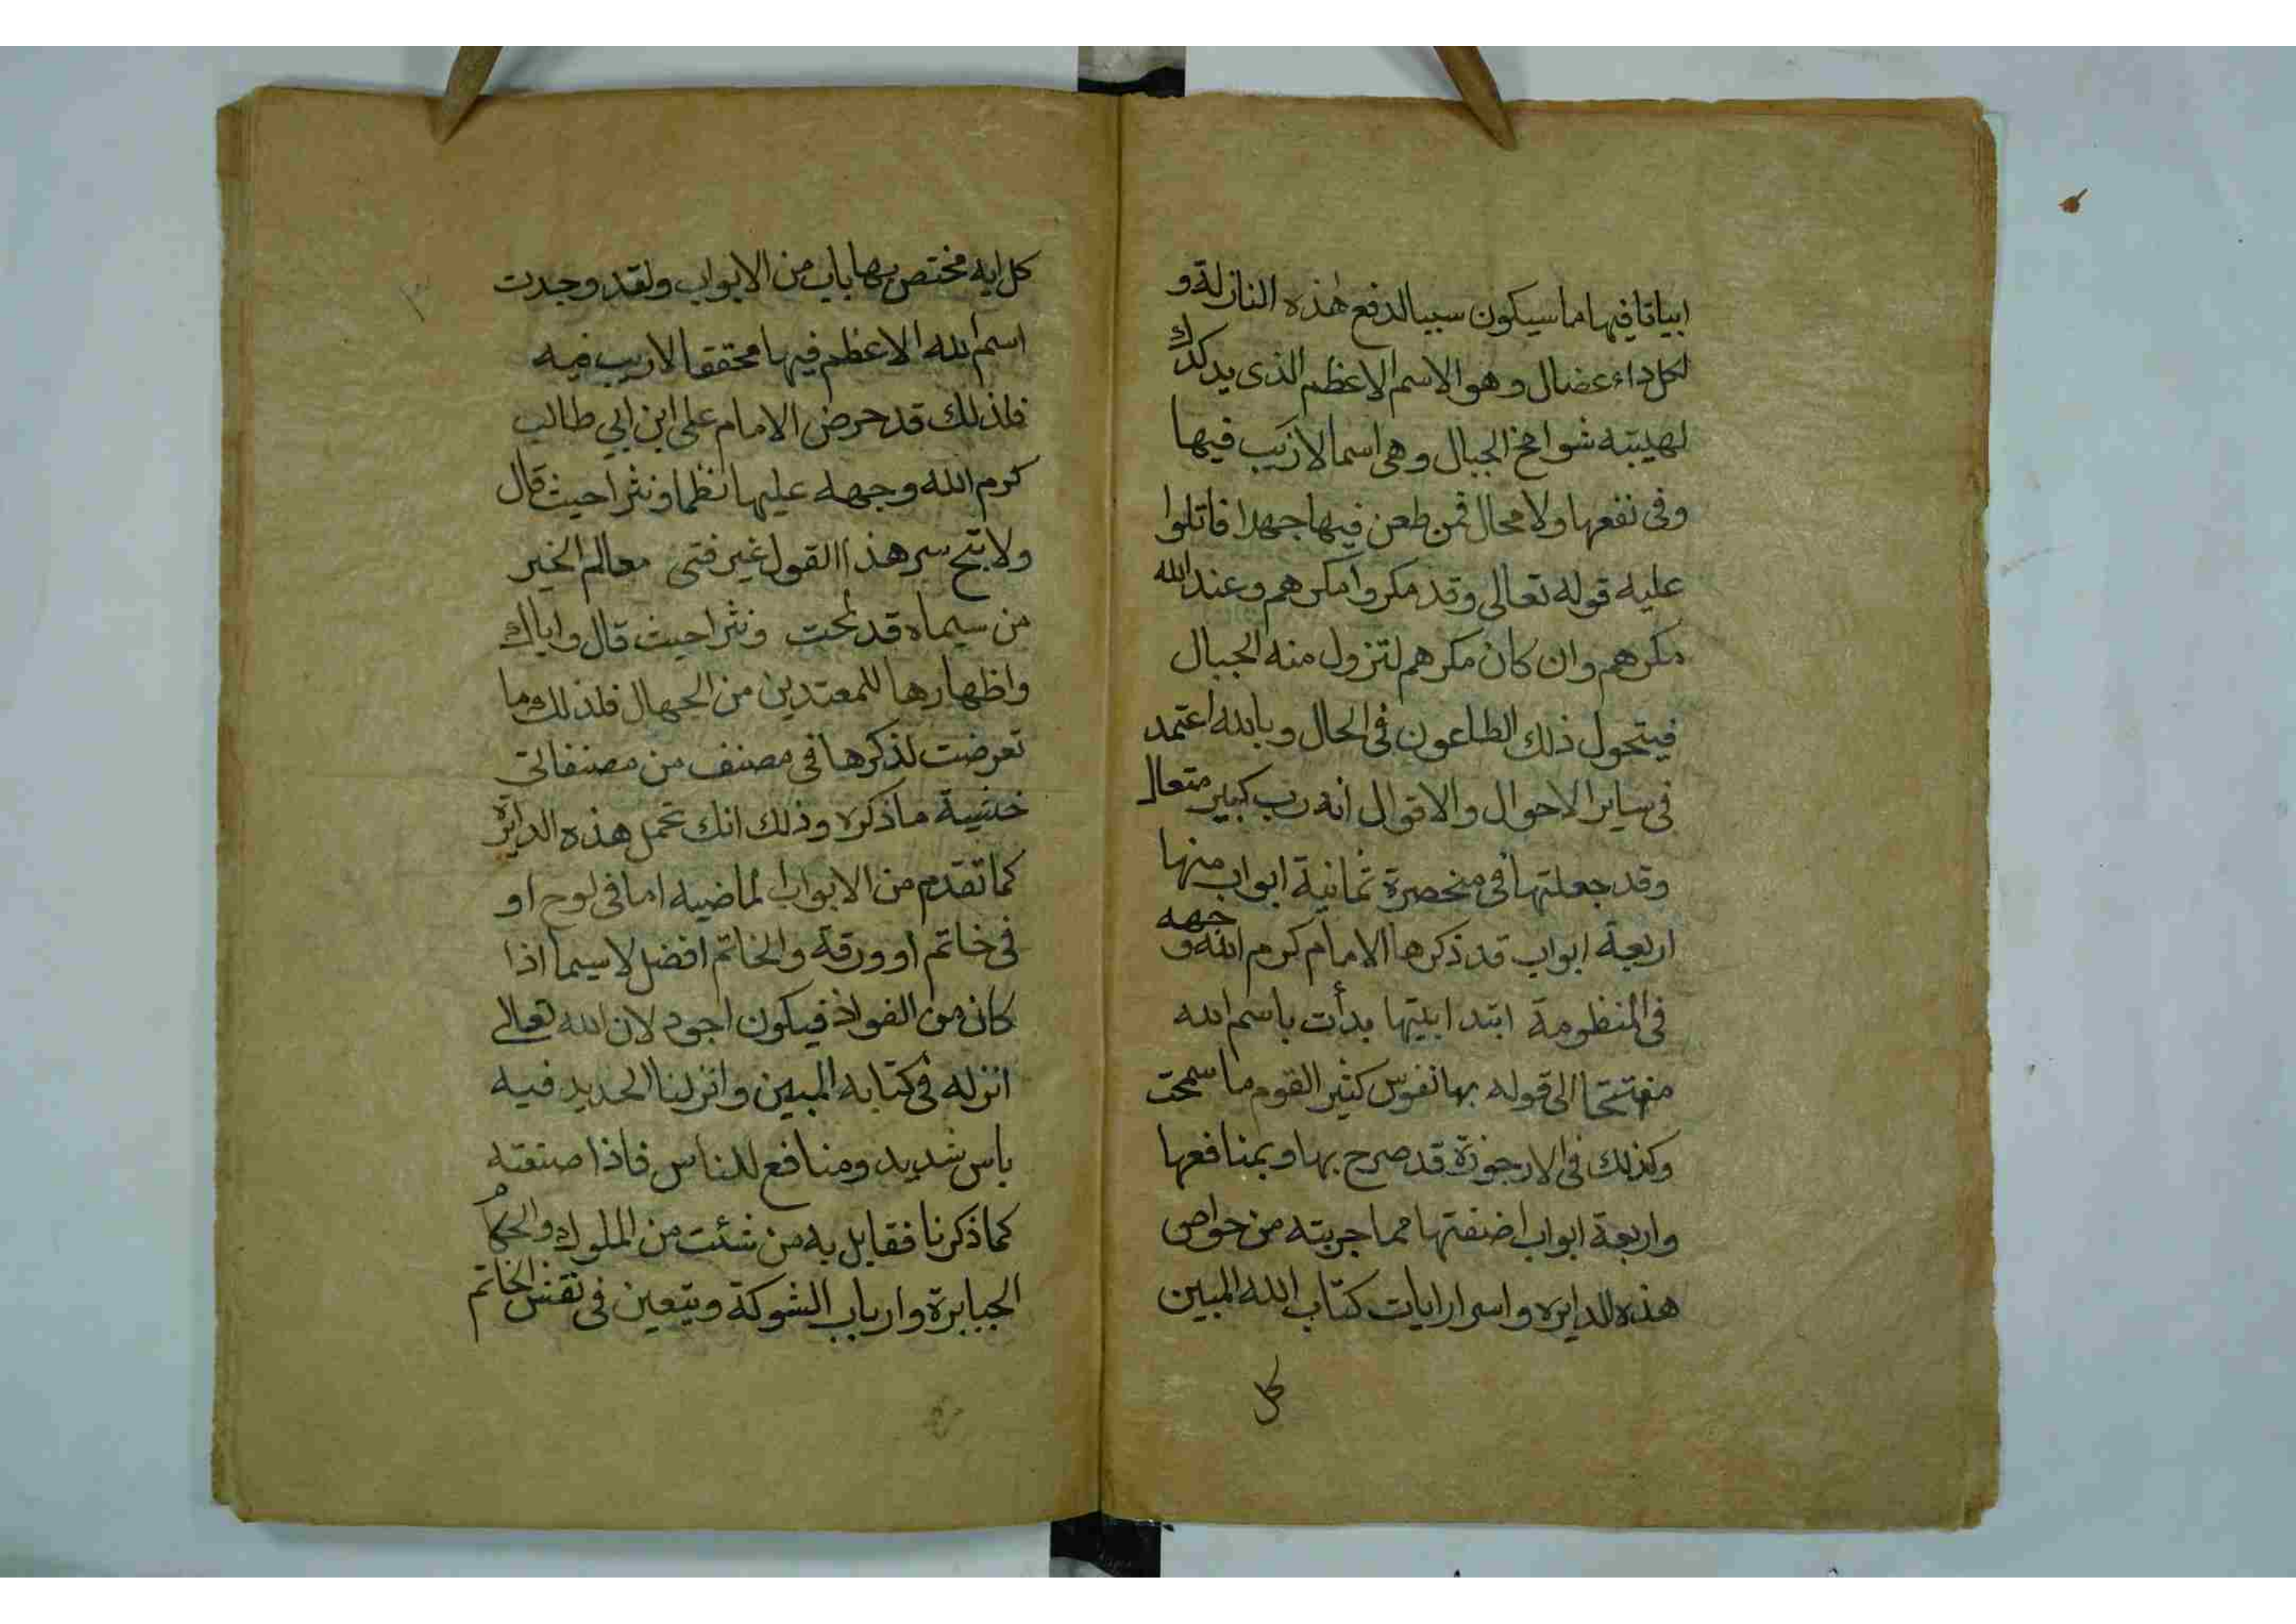 ابياتا فيها ما سيكون سببا لدفع هذه النازلة و
لكل داء عضال و هو الاسم الاعظم الذى يدكدك
لهيبته شوامخ الجبال وهى اسما لاريب فيها
وفى نفعها ولا محال فمن طعن فيها جهدا فاتلوا
عليه قوله تعالى وقد مكروا مكرهم وعند الله
مكرهم وان كان مكرهم لتزول منه الجبال
فيتحول ذلك الطاعون فى الحال وبالله اعتمد
فى ساير الاحوال والاقوال انه رب كبير متعال
وقد جعلتها فى منحصرة ثمانية ابواب منها
اربعة ابواب قد ذكرها الامام كرم الله وجهه
فى المنظومة ابتدا بيتها بدأت باسم الله
مفتتحا الى قوله بها نفوس كثير القوم ما سمحت
وكذلك فى الارجوزة قد صرح بها وبمنافعها
واربعة ابواب اضفتها مما جربته من خواص
هذه الدايره واسرار ايات كتاب الله المبين
كل
كل ايه مختص بها باب من الابواب ولقد وجدت
اسم الله الاعظم فيها محققا لاريب فيه
فلذلك قد حرض الامام على ابن ابي طالب
كرم الله وجهه عليها نظما ونثرا حيث قال
ولا تبح سر هذا القول غير فتى معالم الخير
من سيماه قد لمحت ونثرا حيث قال واياك
واظهارها للمعتدين من الجهال فلذلك ما
تعرضت لذكرها فى مصنف من مصنفاتى
خشية ما ذكره وذلك انك تحمل هذه الدايرة
كما تقدم من الابواب الماضيه اما فى لوح او
فى خاتم او ورقة والخاتم افضل لاسيما اذا
كان من الفولاذ فيكون اجود لان الله تعالى
انزله فى كتابه المبين وانزلنا الحديد فيه
باس شديد ومنافع للناس فاذا صنعته
كما ذكرنا فقابل به من شئت من الملوك والحكام
الجبابرة وارباب الشوكة ويتعين فى نقش الخاتم